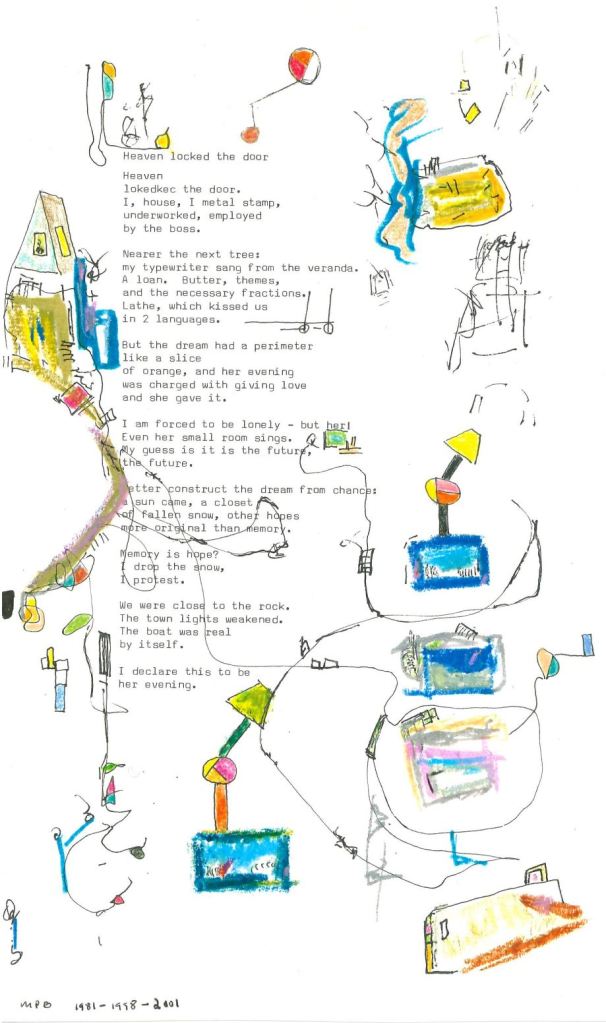 Heaven locked the door
Heaven
lokedkec the door.
I, house, I metal stamp,
underworked, employed
by the boss.
Nearer the next tree:
my typewriter sang from the veranda.
A loan.  Butter, themes,
and the necessary fractions.
Lathe, which kissed us
in 2 languages.
But the dream had a perimeter
like a slice
of orange, and her evening
was charged with giving love
and she gave it.
I am forced to be lonely - but her!
Even her small room sings.
My guess is it is the future,
the future.
Better construct the dream from chance:
a sun came, a closet
of fallen snow, other hopes
more original than memory.
Memory is hope?
I drop the snow,
I protest.
We were close to the rock.
The town lights weakened.
The boat was real
by itself.
I declare this to be
her evening.
MPB 1981-1998-2001